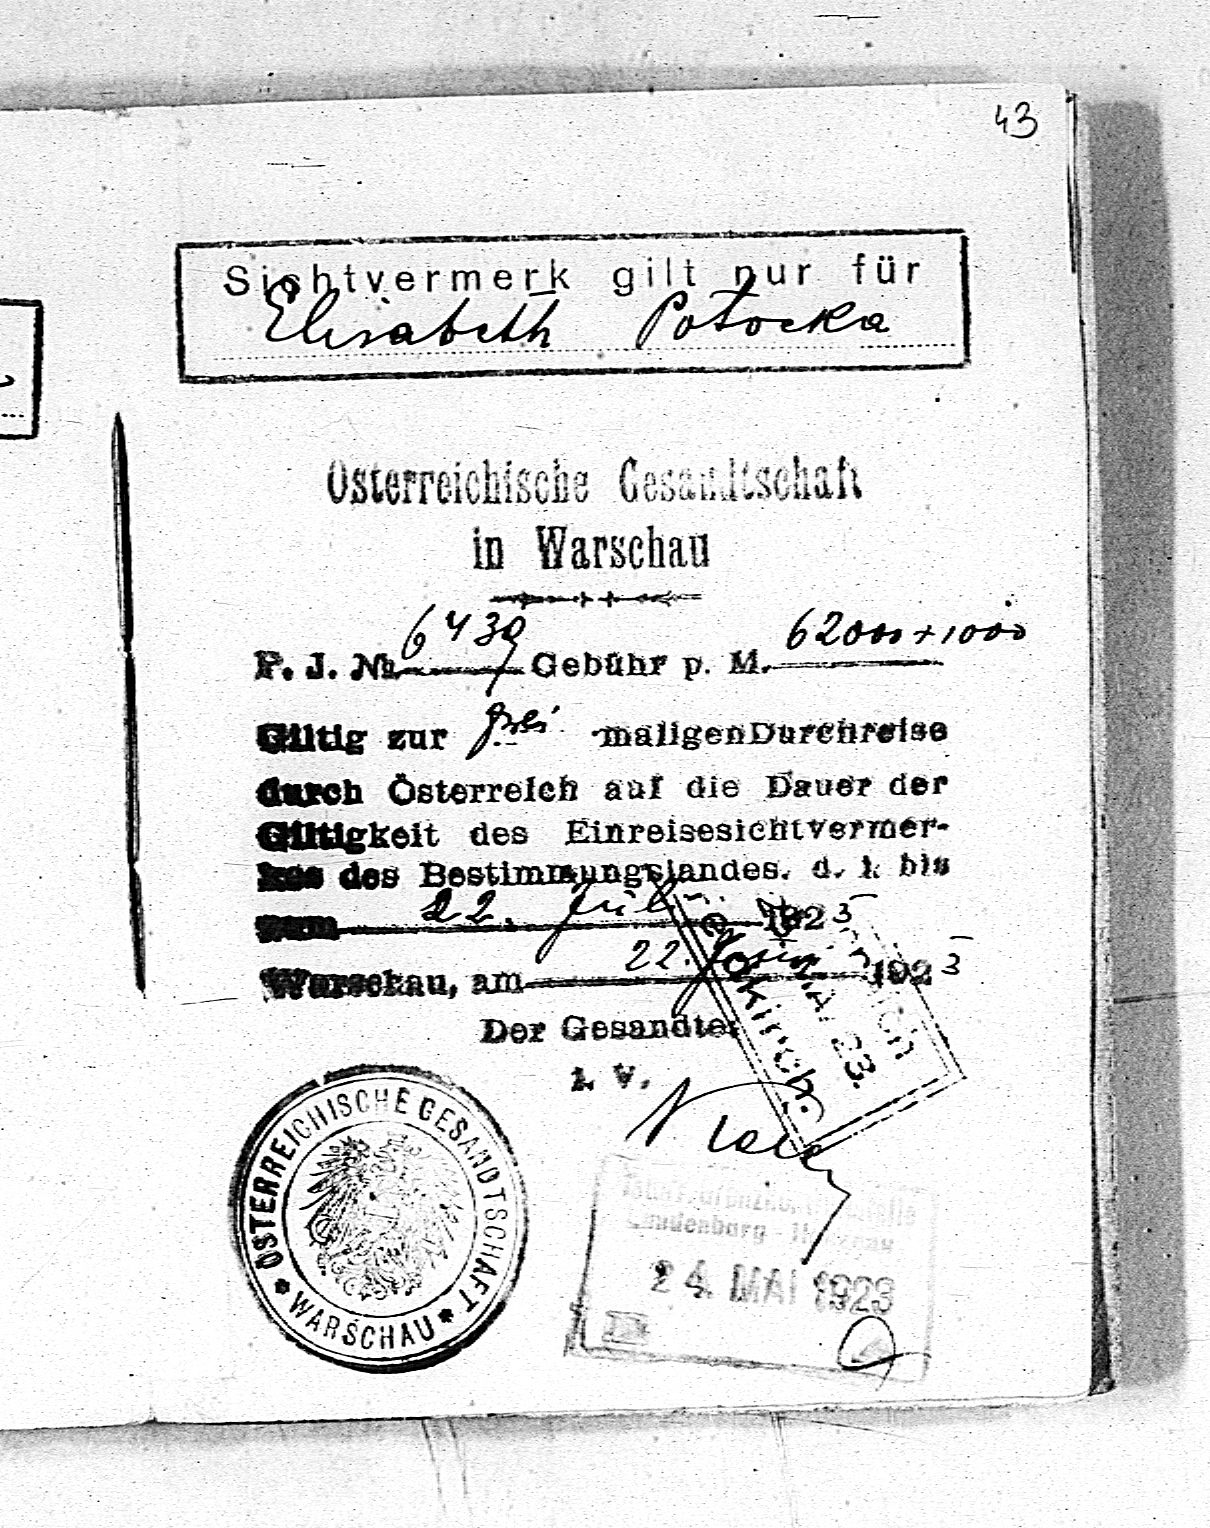 43
Sichtvermerk gilt nur für
Elisabeth Potocka
Österreichische Gesandtschaft
in Warschau
P. J. № 6439 Gebühr p. M. 62000+1000
Giltig zur maligen Durchreise
durch Österreich auf die Dauer der
Giltigkeit des Einreisesichtvermer-
kes des Bestimmungslandes. d. i. bis
zum 22. Juli 1923
Warschau, am 22. 1923
Der Gesandte:
i. V.
ÖSTERREICHISCHE GESANDTSCHAFT
* WARSCHAU *
24 MAI 1923